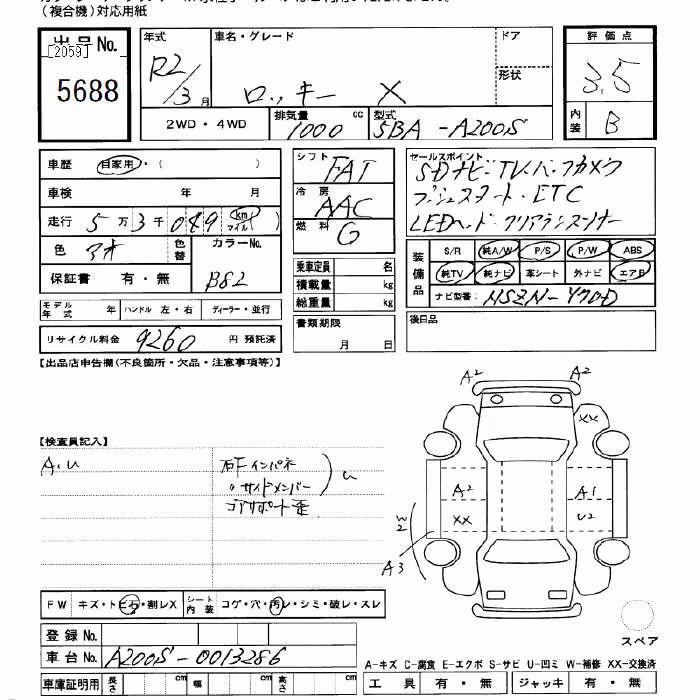 (複合機)対応用紙
出品No.
[2059]
5688
年式 R2/3月
車名・グレード ロッキー X
ドア
形状
評価点 3.5
2WD・4WD
排気量 1000 cc
型式 5BA-A200S
内装 B
車歴 自家用・( )
車検 年 月
走行 5万3千049 km マイル
色 アオ 色替 カラーNo. B82
保証書 有・無
モデル年式 年 ハンドル 左・右 ディーラー・並行
リサイクル料金 9260 円 預託済
シフト FAT
冷房 AAC
燃料 G
乗車定員 名
積載量 kg
総重量 kg
書類期限
月 日
セールスポイント
SDナビ・TV・バックカメラ
プッシュスタート・ETC
LEDヘッド・クリアランスソナー
装備品
S/R 純A/W P/S P/W ABS
純TV 純ナビ 革シート 外ナビ エアB
ナビ型番: NSZN-Y70D
後日品
【出品店申告欄(不良箇所・欠品・注意事項等)】
【検査員記入】
A・U
右Fインパネ
〃サイドメンバー
コアサポート歪
U
A2 A2
XX
A2 A1
XX U2
W2
A3
FW キズ・トビ石・割レX シート内装 コゲ・穴・汚レ・シミ・破レ・スレ
登録No.
車台No. A200S-0013286
車庫証明用 長さ cm 幅 cm 高さ cm
スペア
A-キズ C-腐食 E-エクボ S-サビ U-凹ミ W-補修 XX-交換済
工具 有・無 ジャッキ 有・無